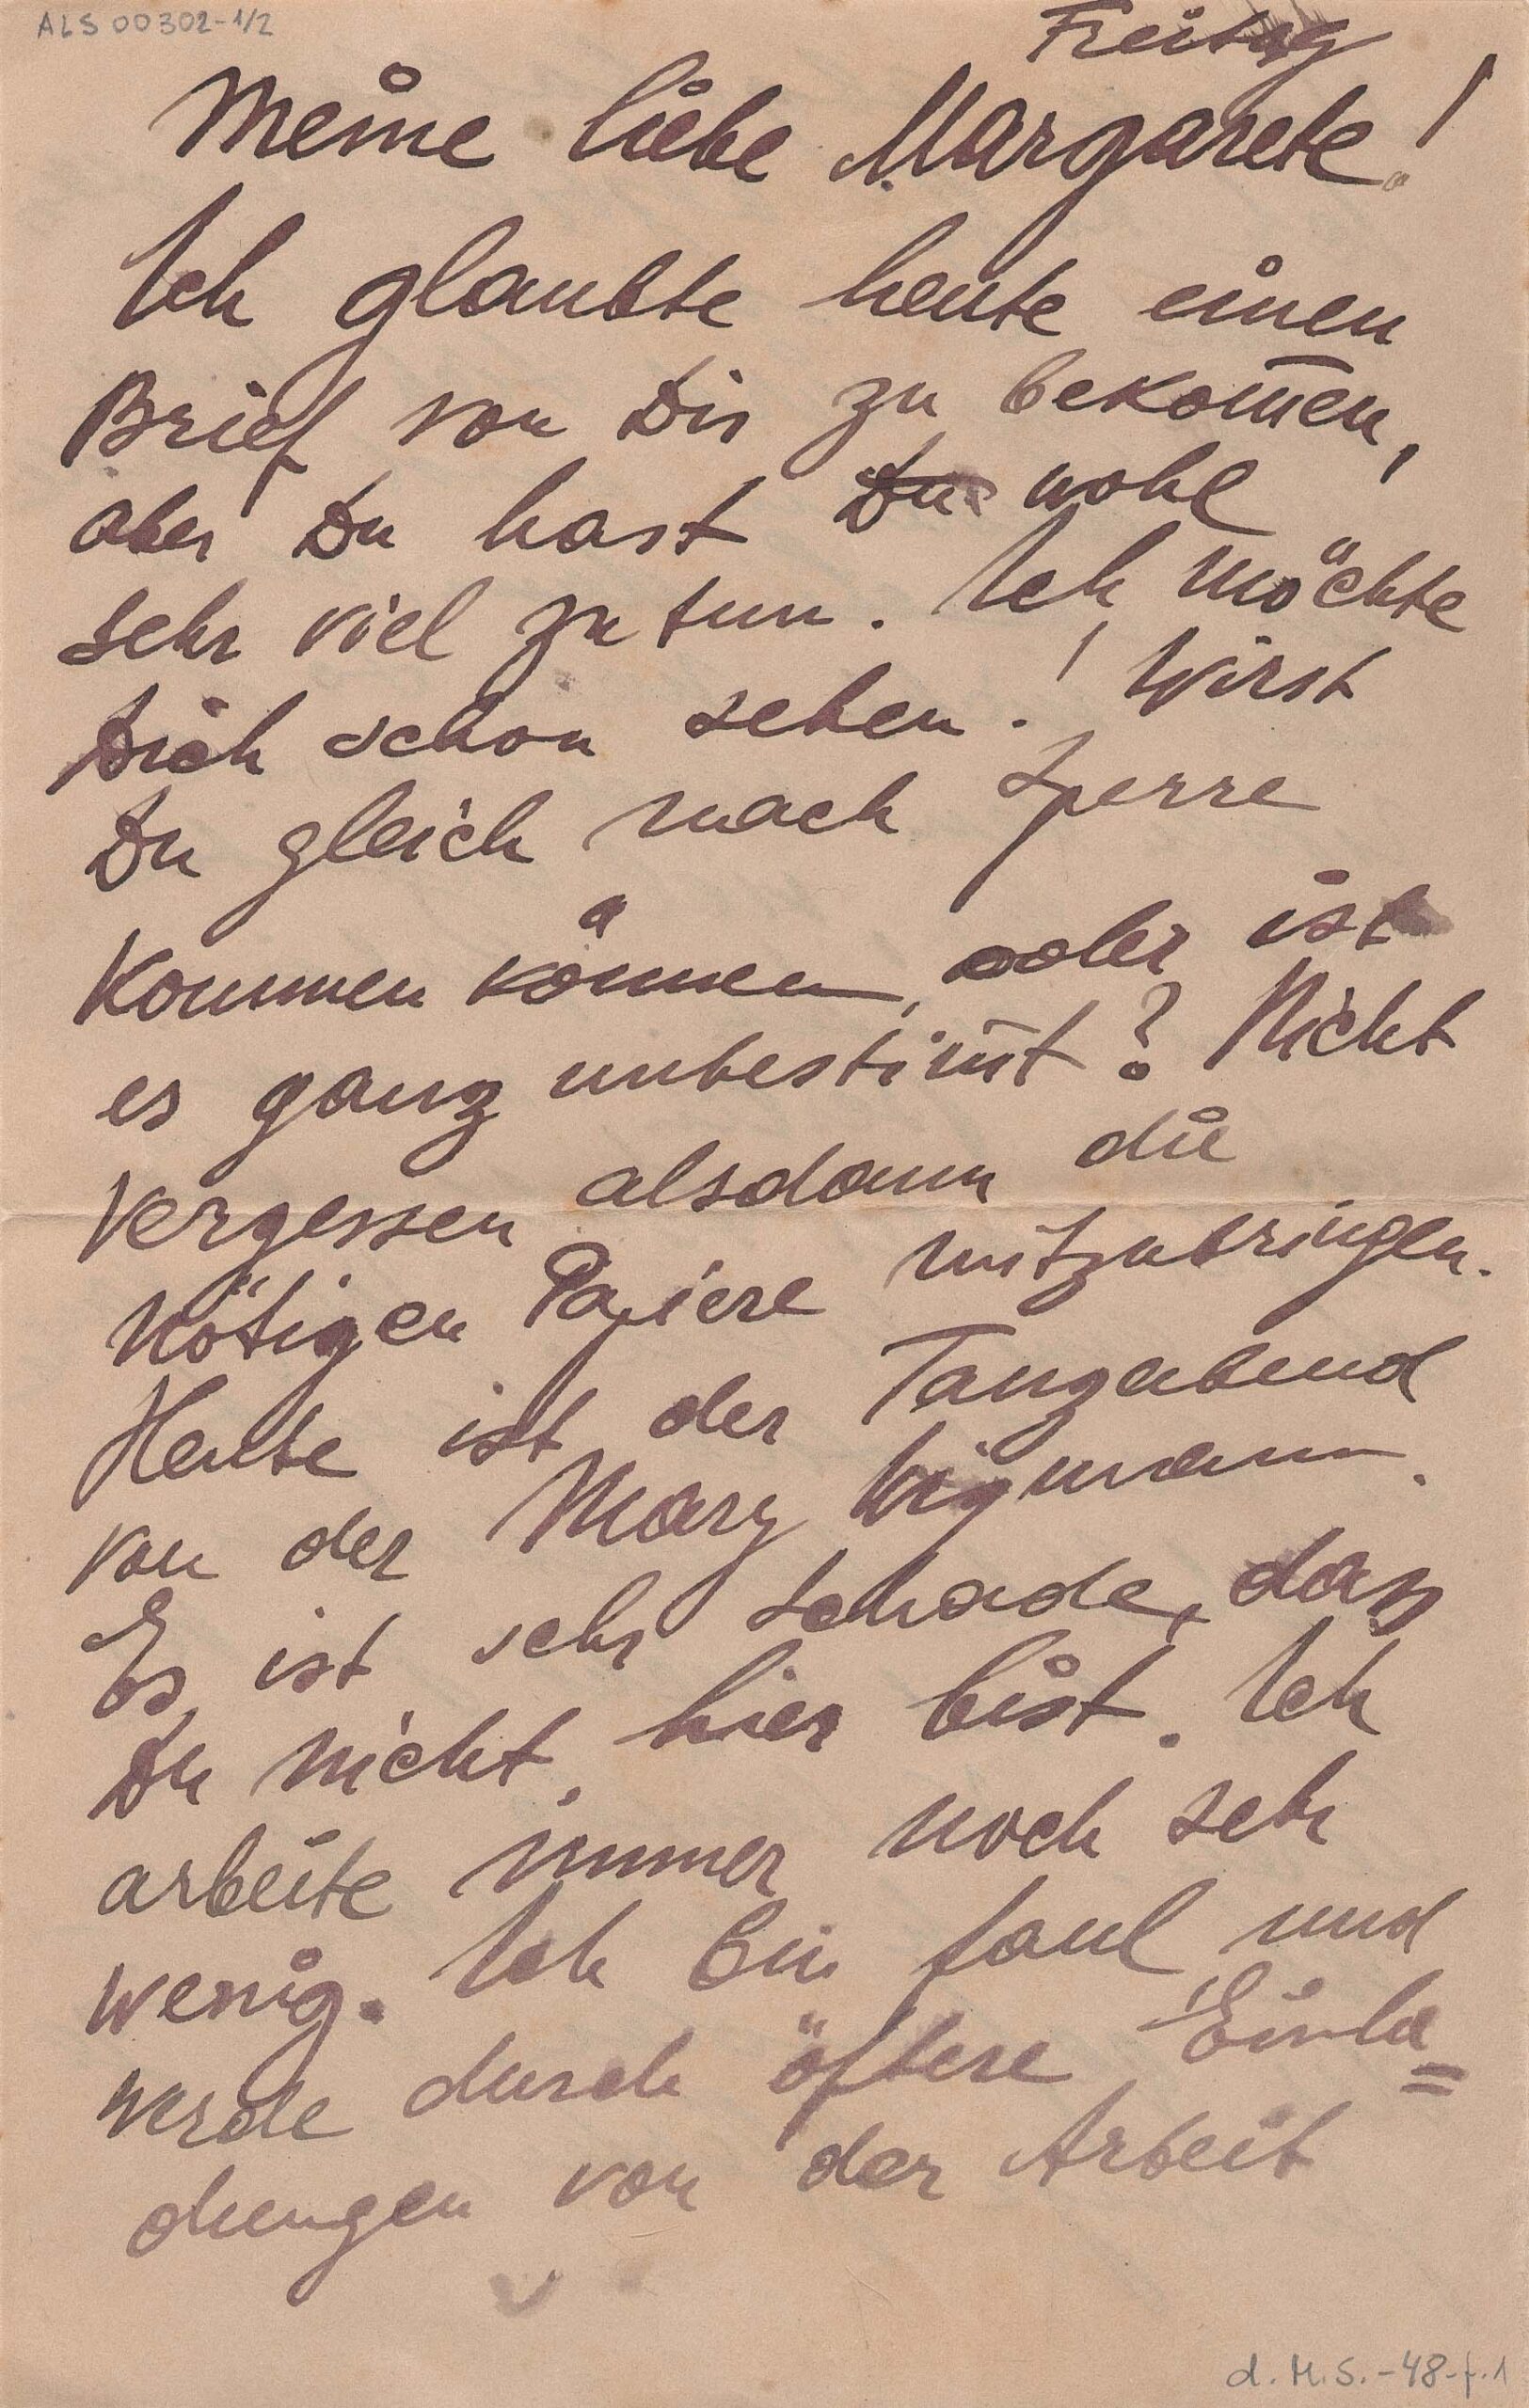 ALS 00302-1/2
Freitag
Meine liebe Margarete!
Ich glaubte heute einen
Brief von Dir zu bekom̅en,
aber Du hast Du wohl
sehr viel zu tun. Ich möchte
Dich schon sehen! Wirst
Du gleich nach Sperre
kommen können, oder ist
es ganz unbestim̅t? Nicht
vergessen alsdann die
nötigen Papiere mitzubringen.
Heute ist der Tanzabend
von der Mary Wigmann.
Es ist sehr schade, dass
Du nicht hier bist. Ich
arbeite immer noch sehr
wenig. Ich bin faul und
werde durch öftere Einla=
dungen von der Arbeit
d.M.S.-48-f.1